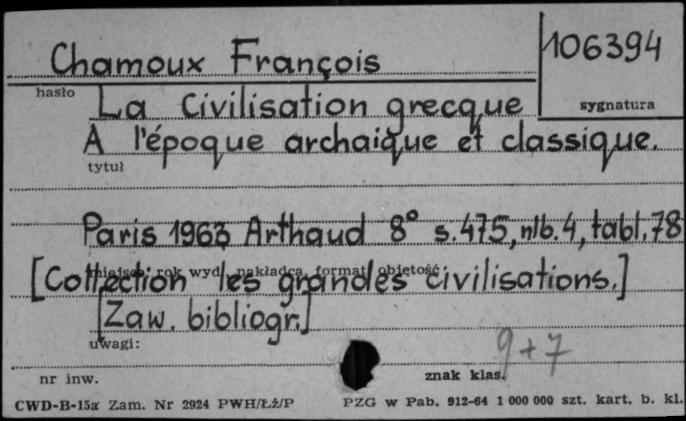 Chamoux François
106394
hasło
La Civilisation grecque
sygnatura
A l'époque archaique et classique.
tytuł
Paris 1963 Arthaud 8° s.475, nlb.4, tabl.78
miejsce, rok wyd., nakładca, format, objętość
[Collection les grandes civilisations.]
[Zaw. bibliogr.]
uwagi:
9+7
nr inw.
znak klas.
CWD-B-15a Zam. Nr 2924 PWH/Łż/P PZG w Pab. 912-64 1 000 000 szt. kart. b. kl.